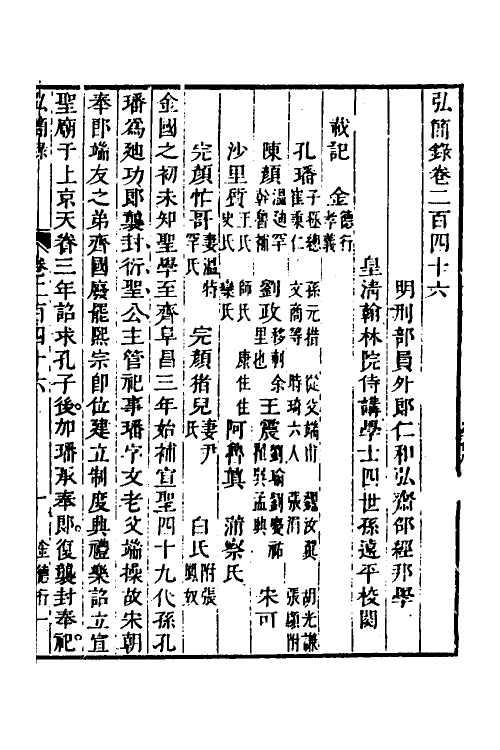 弘簡錄卷二百四十六
明刑部員外郎仁和弘齋邵經邦學
皇清翰林院侍講學士四世孫遠平校閱
載記 金 德行 孝義
孔璠 子拯 總 孫元措 從父端甫
陳顏 溫迪罕斡魯補 劉政 王震 朱可
沙里質 王氏 史氏 師氏 欒氏 康住住 阿魯真 蒲察氏
完顏忙哥 妻溫特罕氏 完顏猪兒 妻尹氏 白氏 附張鳳奴
金國之初未知聖學至齊阜昌三年始補宣聖四十九代孫孔
璠爲廸功郎襲封衍聖公主管祀事璠字文老父端操故宋朝
奉郎端友之弟齊國廢罷熙宗卽位建立制度典禮樂詔立宣
聖廟于上京天眷三年詔求孔子後加璠承奉郎復襲封奉祀
弘簡錄 卷二百四十六 一 金德行一